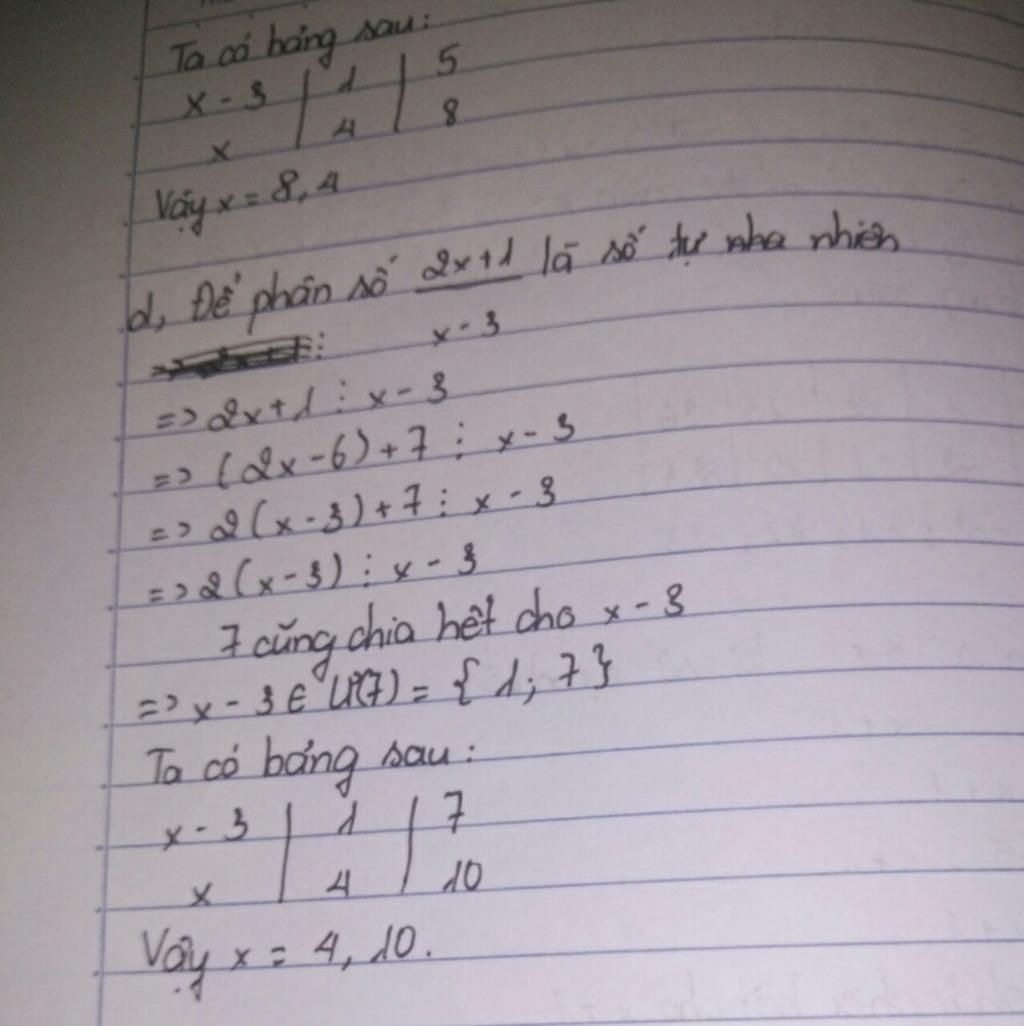 Ta có bảng sau:
x - 3 | 1 | 5
x | 4 | 8
Vậy x = 8, 4
d, Để phân số 2x+1 là số tự nha nhiên
x - 3
=> 2x+1 ⋮ x - 3
=> (2x-6)+7 ⋮ x - 3
=> 2(x-3)+7 ⋮ x - 3
=> 2(x-3) ⋮ x - 3
7 cũng chia hết cho x - 3
=> x - 3 ∈ Ư(7) = { 1; 7 }
Ta có bảng sau:
x - 3 | 1 | 7
x | 4 | 10
Vậy x = 4, 10.